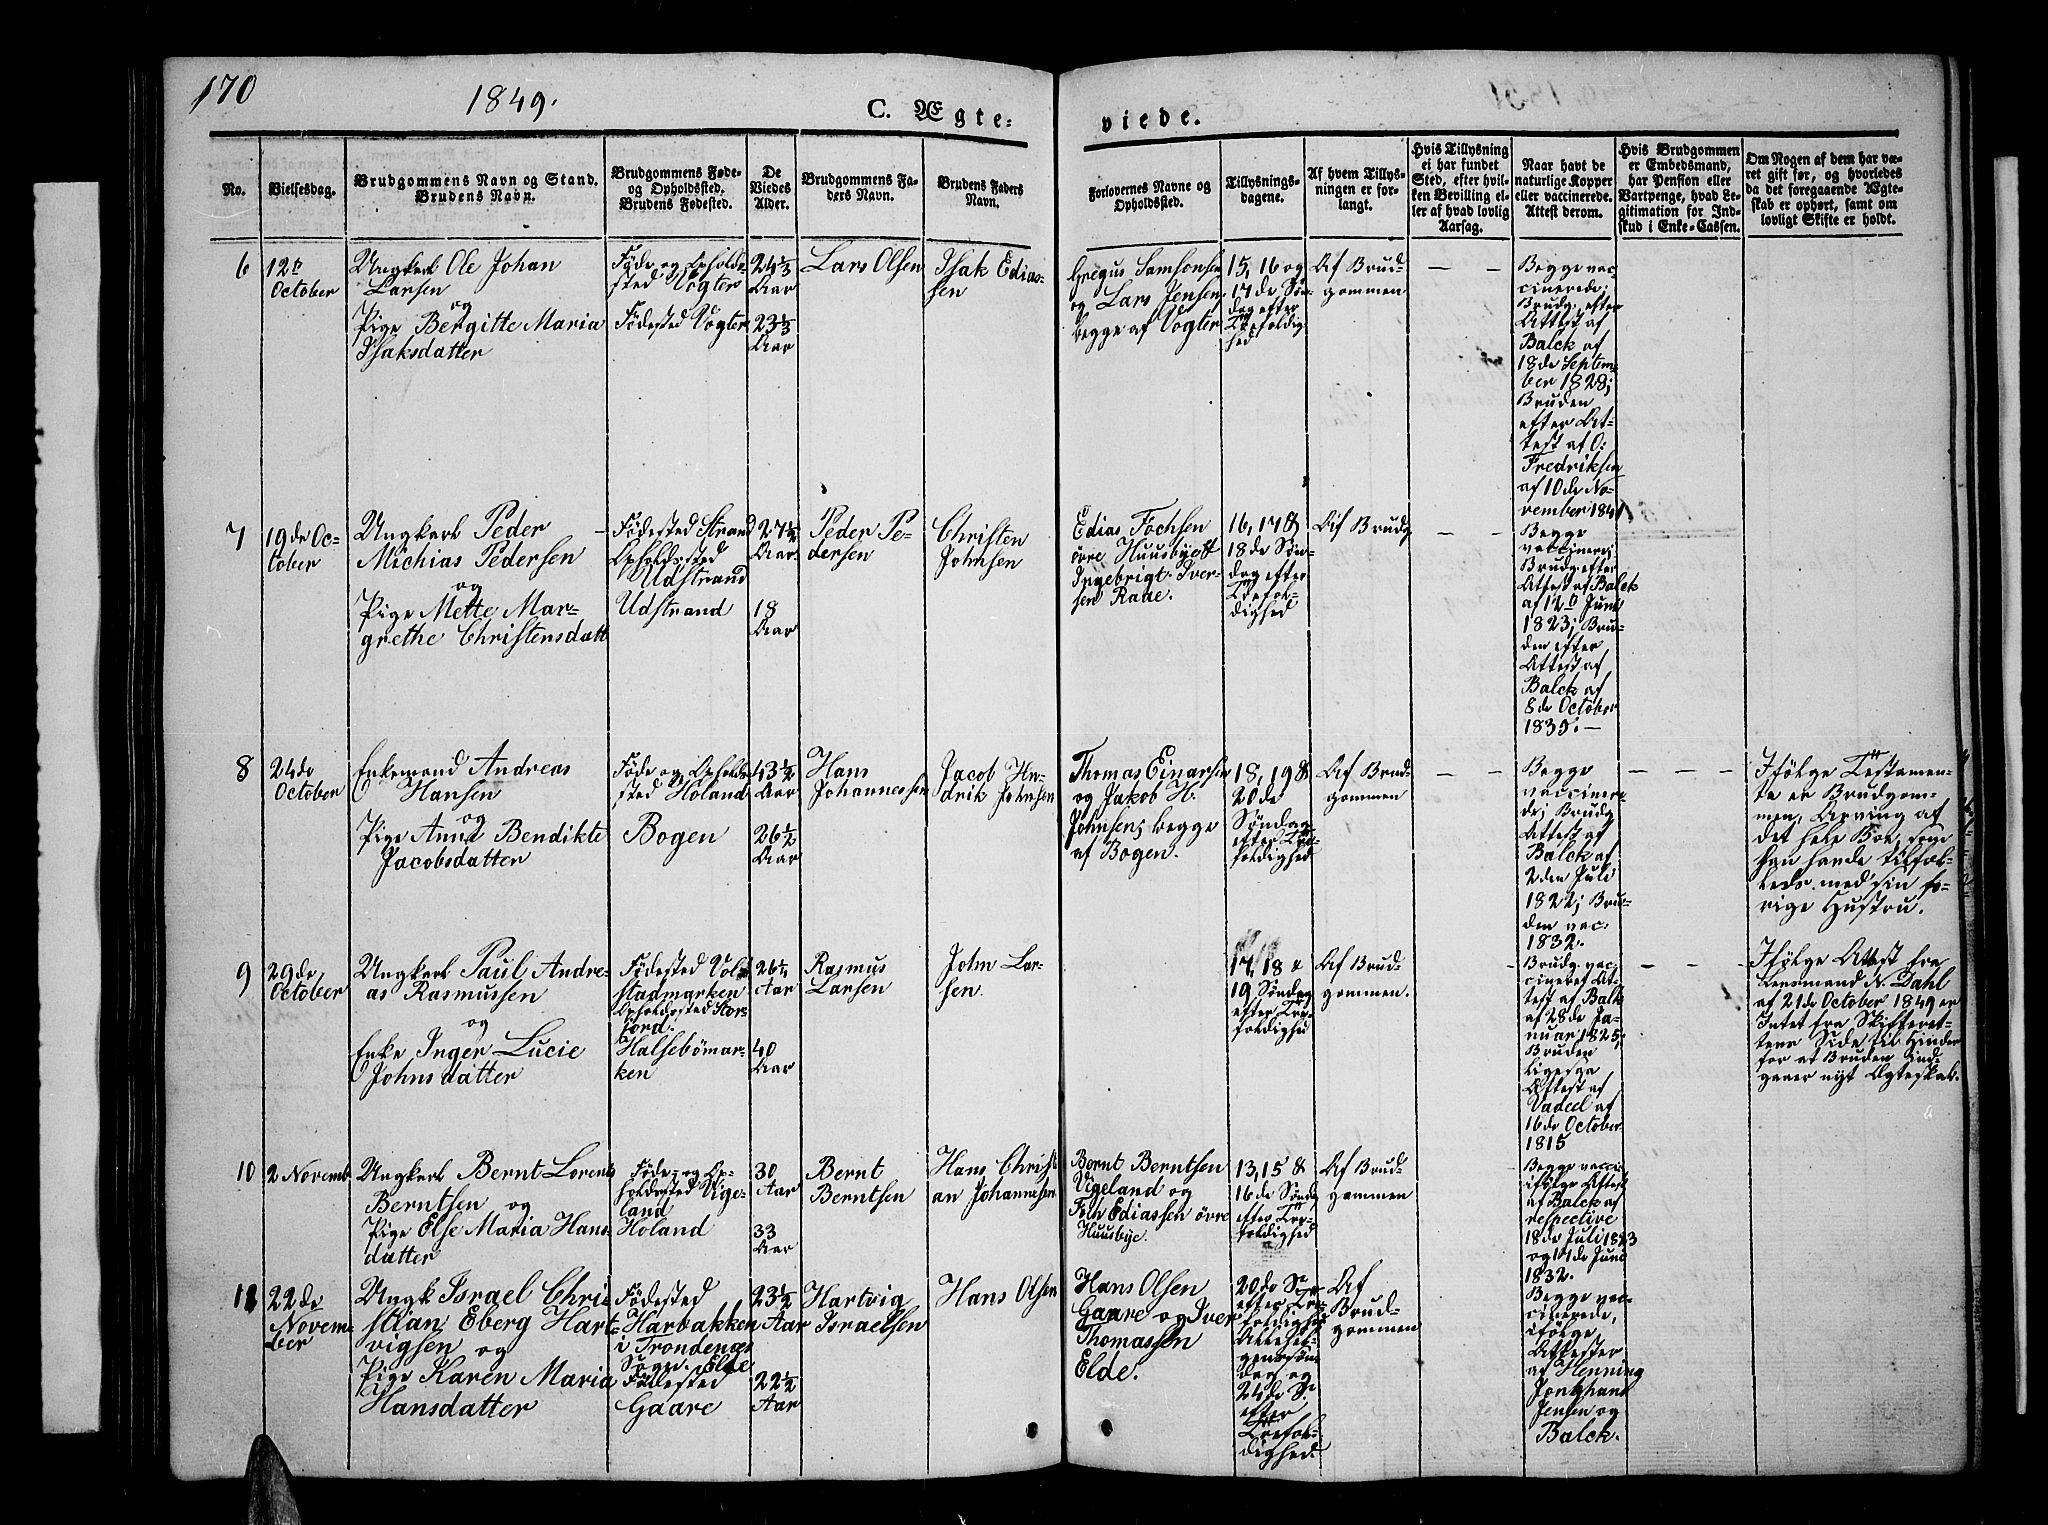 170
1849.
C. Ægte-
viede.
No.
Vielsesdag.
Brudgommens Navn og Stand.
Brudens Navn.
Brudgommens Føde-
og Opholdssted.
Brudens Fødested.
De
Viedes
Alder.
Brudgommens Fa-
ders Navn.
Brudens Faders
Navn.
Forlovernes Navne og
Opholdssted.
Tillysnings-
dagene.
Af hvem Tillys-
ningen er for-
langt.
Hvis Tillysning
ei har fundet
Sted, efter hvil-
ken Bevilling el-
ler af hvad lovlig
Aarsag.
Naar havt de
naturlige Kopper
eller vaccinerede.
Attest derom.
Hvis Brudgommen
er Embedsmand,
har Pension eller
Vartpenge, hvad Le-
gitimation for Ind-
skud i Enke-Cassen.
Om Nogen af dem har væ-
ret gift før, og hvorledes
da det foregaaende Ægte-
skab er ophørt, samt om
lovligt Skifte er holdt.
6
12te
October
Ungkarl Ole Johan
Larsen
og
Pige Bergitte Maria
Isaksdatter
Føde og Opholds-
sted Vogter
Fødested Vogter
24 1/3
Aar
23 1/3
Aar
Lars Olsen
Isak Edias-
sen
Gregus Samsonsen
og Lars Jensen
begge af Vogter
15, 16 og
17de Søn-
dag efter
Trefoldig
hed
Af Brud-
gommen
— —
Begge vac-
cinerede;
Brudg. efter
Attest af
Balck af
18de Septem-
ber 1828;
Bruden
efter At-
test af O:
Fredriksen
af 10de No-
vember 1841
7
19de Oc-
tober
Ungkarl Peder
Michias Pedersen
og
Pige Mette Mar-
grethe Christensdatt
Fødested Strand
Opholdssted
Udstrand
Udstrand
27 1/2
Aar
18
Aar
Peder Pe-
dersen
Christen
Johnsen
Edias Fochsen
övre Huusbye &
Ingebrigt Iver-
sen Raae.
16, 17 &
18de Søn-
dag efter
Trefol-
dighed
Af Brudg
— —
Begge
vaccinered;
Brudg. efter
Attest af Balck
af 12te Juni
1823; Bru-
den efter
Attest af
Balck af
8de October
1835. —
8
24de
October
Enkemand Andreas
Hansen
og
Pige Anne Bendikte
Jacobsdatter
Føde og Opholds-
sted Holand
Bogen
43 1/2
Aar
26 1/2
Aar
Hans
Johannessen
Jacob Hen-
drik Johnsen
Thomas Einarsen
og Jakob H.
Johnsen; begge
af Bogen.
18, 19 &
20de
Søndag
efter Tre-
foldighed
Af Brud-
gommen
— —
Begge
vaccinere-
de; Brudg
Attest af
Balck af
2den Juli
1822; Bru-
den vac.
1832.
— — —
Ifølge Testamen-
te er Brudgom-
men, Arving af
det hele Boe, som
han havde tilfæl-
leds med sin fo-
rige Hustru.
9
29de
October
Ungkarl Paul Andre-
as Rasmussen
og
Enke Inger Lucie
Johnsdatter
Fødested Vol-
stadmarken
Opholdssted Stors-
fjord.
Halsebömar-
ken
26 1/2
Aar
40
Aar
Rasmus
Larsen
John Lar-
sen.
17, 18 &
19 Søndag
efter Tre-
foldighed
Af Brud-
gommen.
Brudg. vac-
cineret At-
test af Balck
af 28de Ja-
nuar 1825;
Bruden
ligesaa
Attest af
Vadeel af
16de October
1815
— — —
Ifølge Attest fra
Lensmand N. Dahl
af 21de October 1849 er
Intet fra Skifteret-
tens Side til Hinder
for at Bruden ind-
gaaer nyt Ægteskab.
10
2 Novemb
Ungkarl Bernt Lorents
Berntsen og
Pige Else Maria Hans-
datter
Føde- og Op-
holdssted Vige-
land
Holand
30
Aar
33
Aar
Bernt
Berntsen
Hans Christi
an Johannesen
Bernt Berntsen
Vigeland og
Foch Ediassen övre
Huusbye.
13, 15 &
16de Søndg
efter Tre-
foldighed
Af Brud-
gommen
Begge vacci.
ifölge Attest
af Balck af
respective
18de Juli 1823
og 14de Juni
1832.
11
22de
Novem-
ber
Ungk Israel Chri-
stian Eberg Hart-
vigsen og
Pige Karen Maria
Hansdatter
Födested
Harbakken
i Trondenæs
Sogn. Elde
Födested
Gaare
23 1/2
Aar
22 1/2
Aar
Hartvig
Israelsen
Hans Olsen
Hans Olsen
Gaare og Iver
Thomassen
Elde.
20de Sr
efter Tre-
foldighed
Allehel-
genssøn
dag og
24de Sr
efter
Trefol-
dighed.
Af
Brud-
gommen
Begge vac-
cinerede,
ifölge
Attester
af Henning
Junghans
Jensen og
Balck.